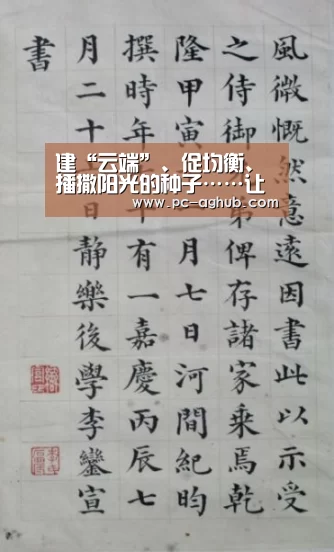 風微慨然意遠因書此以示受
之侍御弟俾存諸家乘焉乾
隆甲寅月七日河間紀昀
撰時年十有一嘉慶丙辰七
月二十日静樂後學李鑾宣
書
建“云端”、促均衡、
播撒阳光的种子……让
www.pc-aghub.com